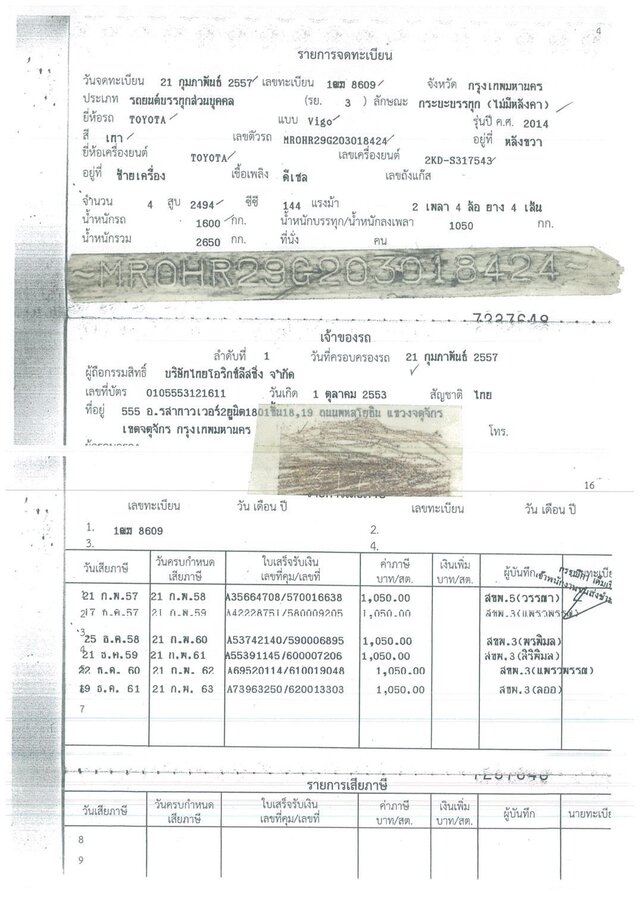 4
รายการจดทะเบียน
วันจดทะเบียน 21 กุมภาพันธ์ 2557 เลขทะเบียน 1ฒฒ 8609 จังหวัด กรุงเทพมหานคร
ประเภท รถยนต์บรรทุกส่วนบุคคล (รย. 3) ลักษณะ กระบะบรรทุก (ไม่มีหลังคา)
ยี่ห้อรถ TOYOTA แบบ Vigo รุ่นปี ค.ศ. 2014
สี เทา เลขตัวรถ MROHR29G203018424 อยู่ที่ หลังขวา
ยี่ห้อเครื่องยนต์ TOYOTA เลขเครื่องยนต์ 2KD-S317543
อยู่ที่ ซ้ายเครื่อง เชื้อเพลิง ดีเซล เลขถังแก๊ส
จำนวน 4 สูบ 2494 ซีซี 144 แรงม้า 2 เพลา 4 ล้อ ยาง 4 เส้น
น้ำหนักรถ 1600 กก. น้ำหนักบรรทุก/น้ำหนักลงเพลา 1050 กก.
น้ำหนักรวม 2650 กก. ที่นั่ง คน
~MROHR29G203018424~
เจ้าของรถ
ลำดับที่ 1 วันที่ครอบครองรถ 21 กุมภาพันธ์ 2557
ผู้ถือกรรมสิทธิ์ บริษัทไทยโอริกซ์ลีสซิ่ง จำกัด
เลขที่บัตร 0105553121611 วันเกิด 1 ตุลาคม 2553 สัญชาติ ไทย
ที่อยู่ 555 อ.รสาทาวเวอร์2ยูนิต1801ชั้น18,19 ถนนพหลโยธิน แขวงจตุจักร
เขตจตุจักร กรุงเทพมหานคร โทร.
16
เลขทะเบียน วัน เดือน ปี เลขทะเบียน วัน เดือน ปี
1. 8609 2.
3. 4.
วันเสียภาษี วันครบกำหนดเสียภาษี ใบเสร็จรับเงิน เลขที่คุม/เลขที่ ค่าภาษี บาท/สต. เงินเพิ่ม บาท/สต. ผู้บันทึก
21 ก.พ.57 21 ก.พ.58 A35664708/570016638 1,050.00 สขพ.5(วรรณา)
17 ธ.ค.57 21 ก.พ.59 A42228751/580009205 1,050.00 สขพ.3(แพรวพรรณ)
25 ธ.ค.58 21 ก.พ.60 A53742140/590006895 1,050.00 สขพ.3(พรพิมล)
21 ธ.ค.59 21 ก.พ.61 A55391145/600007206 1,050.00 สขพ.3(สิริพิมล)
22 ธ.ค. 60 21 ก.พ. 62 A69520114/610019048 1,050.00 สขพ.3(แพรวพรรณ)
19 ธ.ค. 61 21 ก.พ. 63 A73963250/620013303 1,050.00 สขพ.3(ลออ)
7
รายการเสียภาษี
วันเสียภาษี วันครบกำหนดเสียภาษี ใบเสร็จรับเงิน เลขที่คุม/เลขที่ ค่าภาษี บาท/สต. เงินเพิ่ม บาท/สต. ผู้บันทึก นายทะเบี
8
9